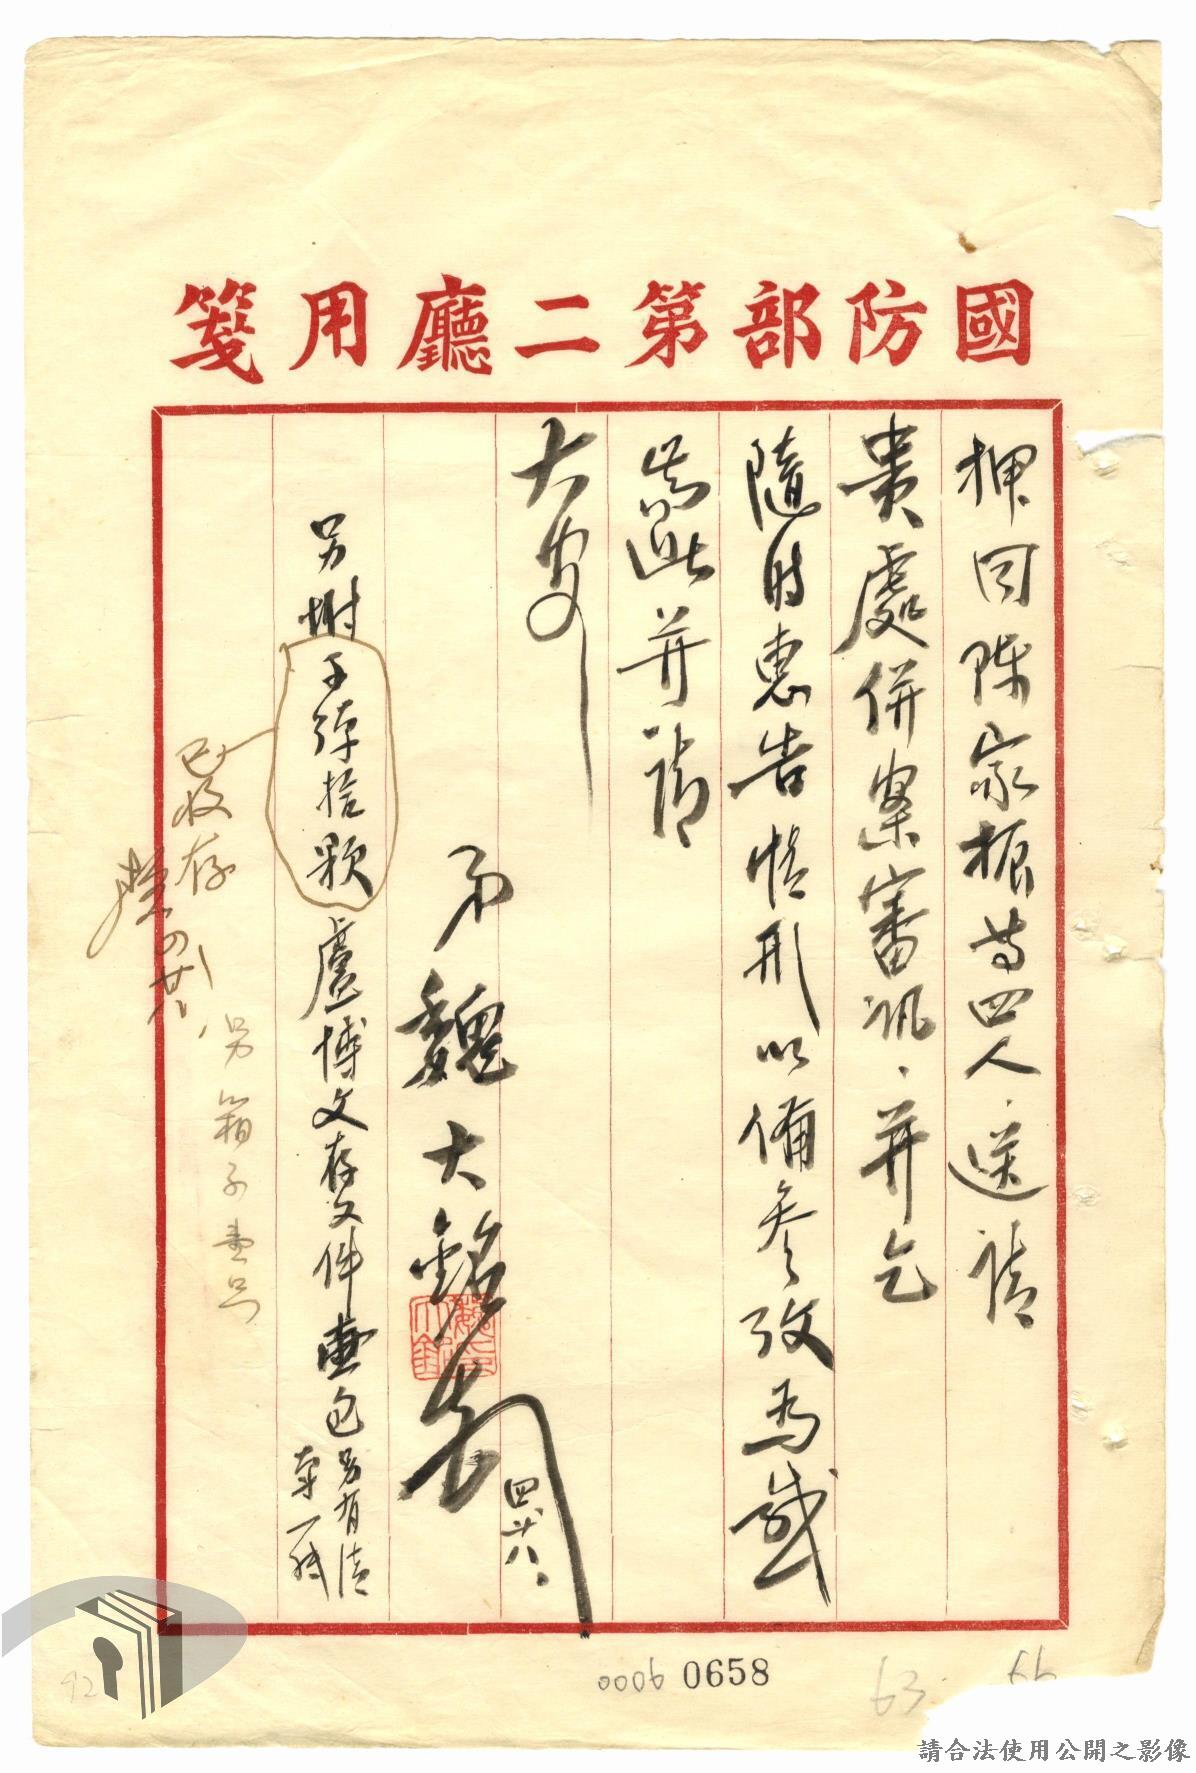 國防部第二廳用箋
押回陳家振等四人、送請
貴處併案審訊、并乞
隨時惠告情形以備參攷為感
耑此并請
大安
弟魏大銘
四、廿八、
另附子彈拾顆 盧博文存文件壹包 另有清
單一紙
已收存
四廿八
另箱子壹只
0006 0658
63
66
92
請合法使用公開之影像